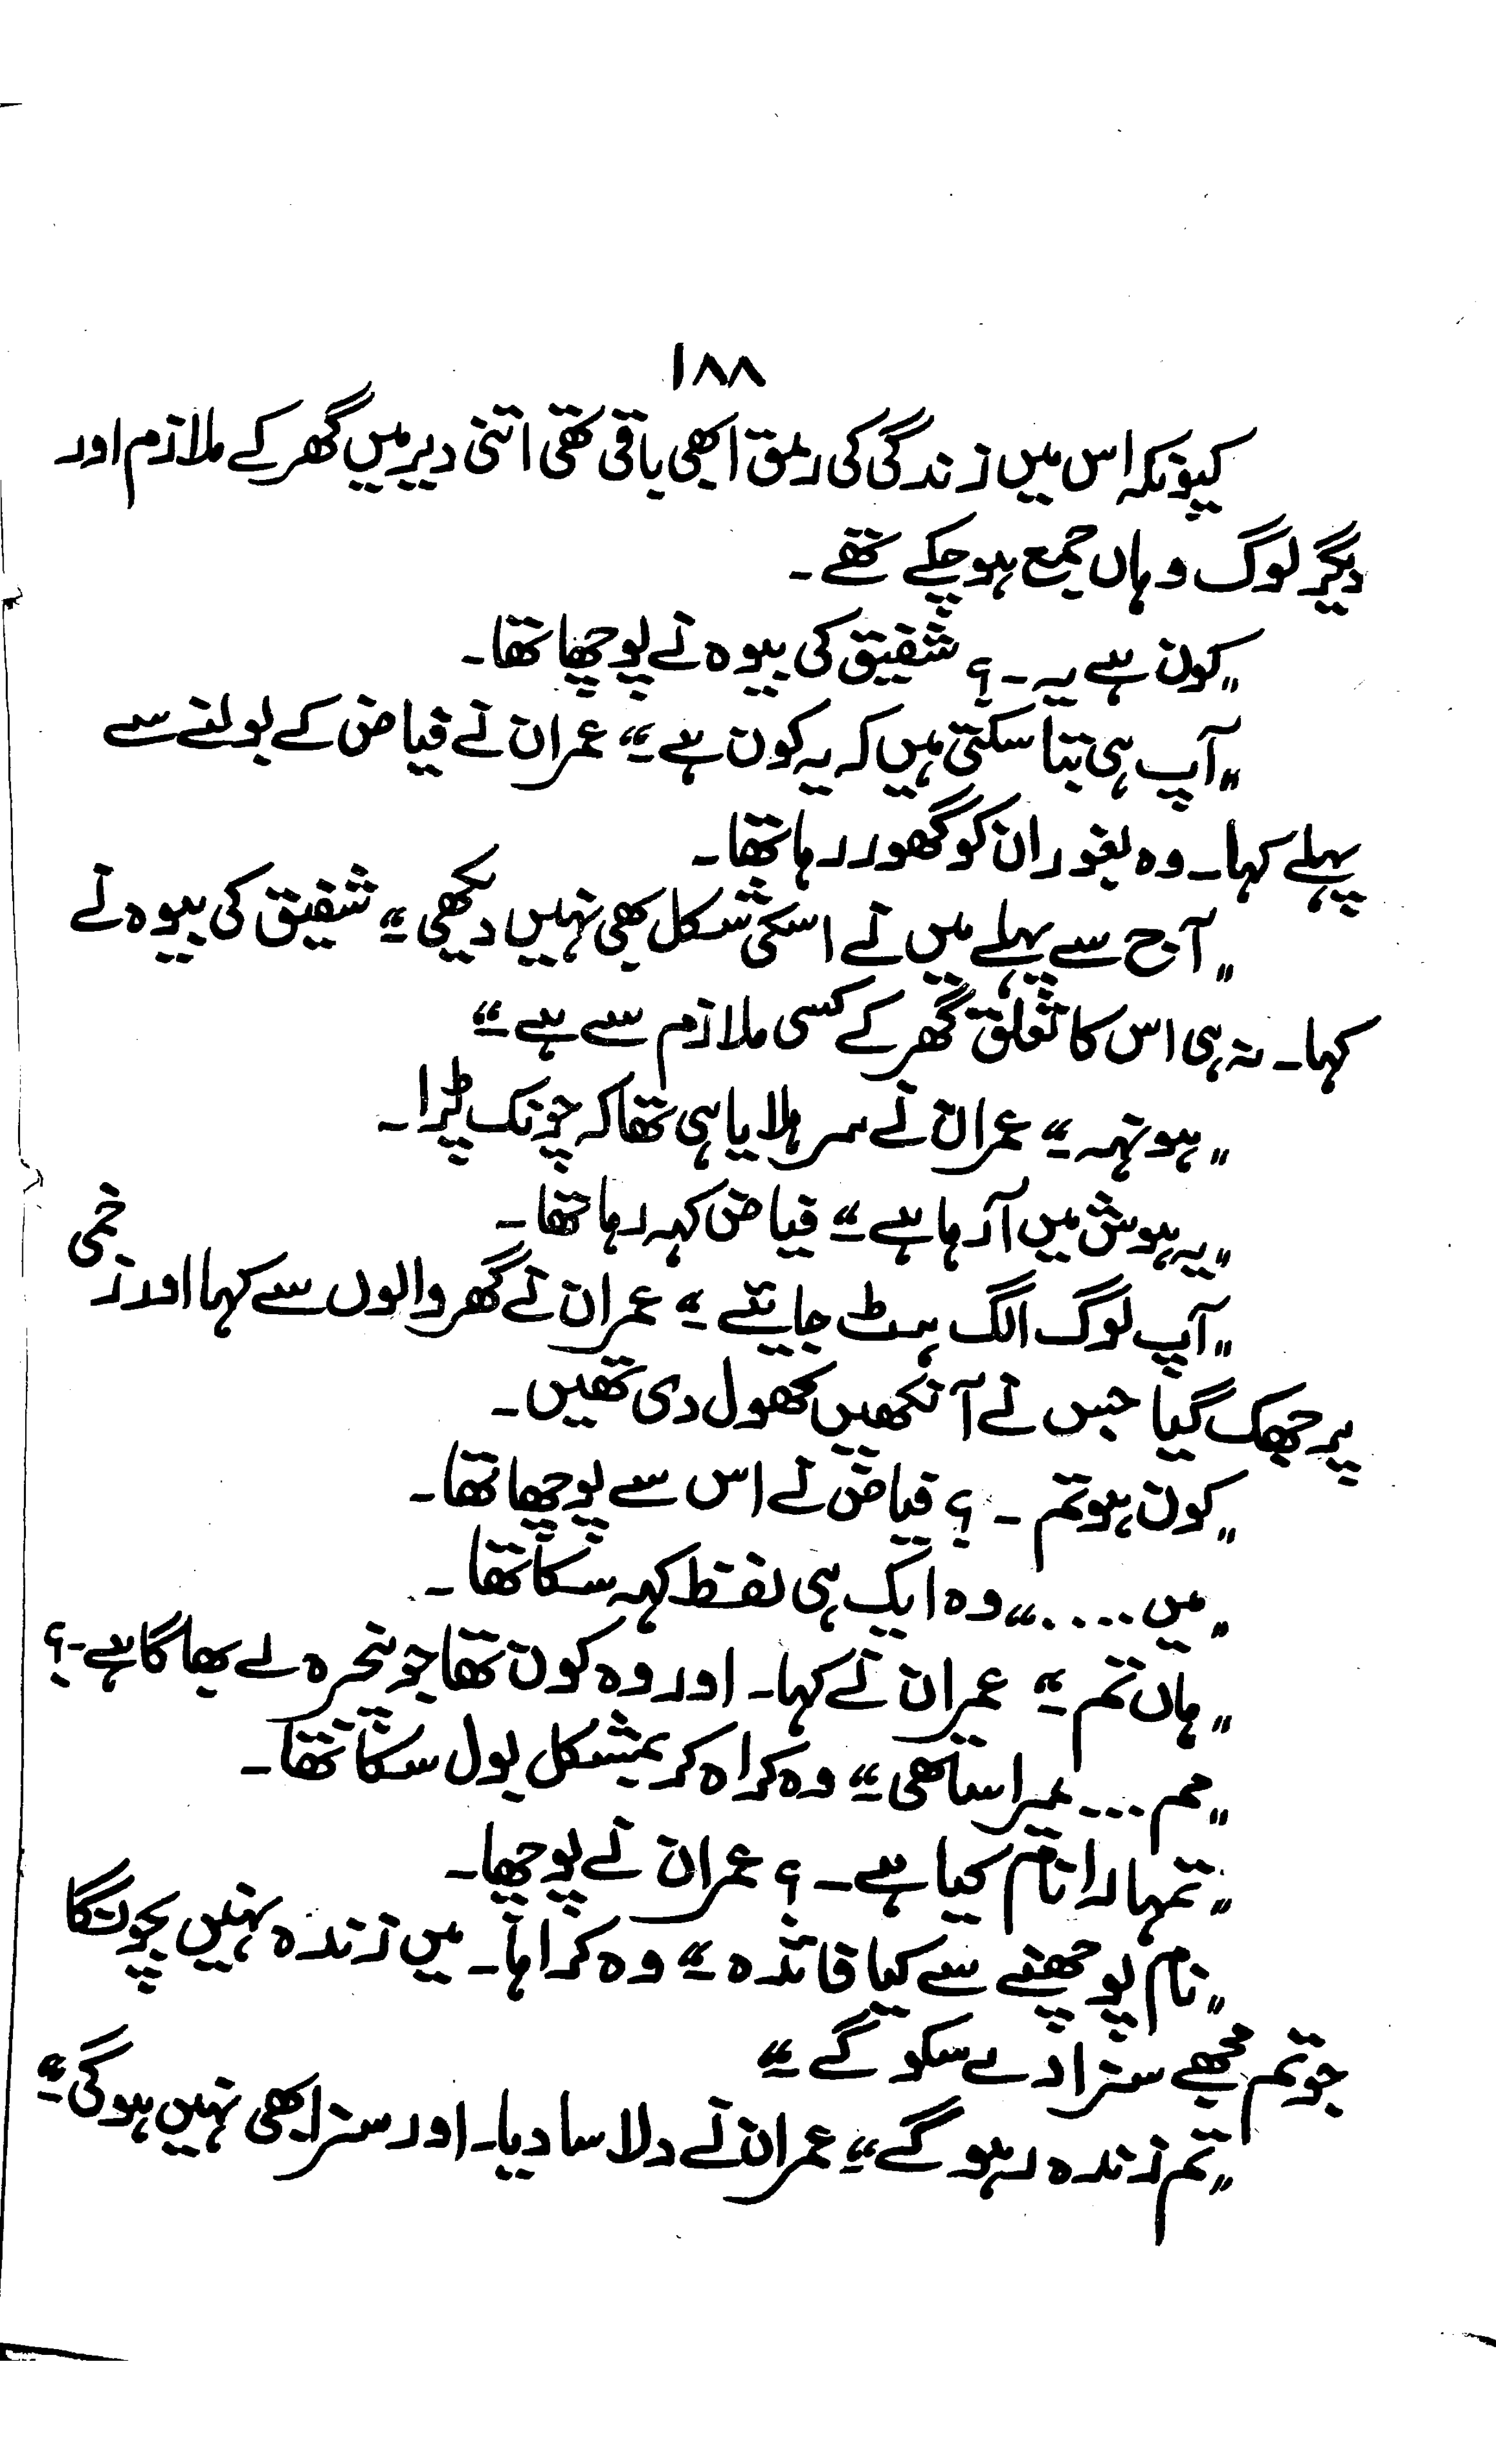 ۱۸۸
کیونکہ اس میں زندگی کی رمق ابھی باقی تھی اتنی دیر میں گھر کے ملازم اور
دیگر لوگ وہاں جمع ہو چکے تھے ۔
"کون ہے یہ ۔ ؟ شفیق کی بیوہ نے پوچھا تھا ۔
"آپ ہی بتا سکتی ہیں کہ یہ کون ہے ۔" عمران نے فیاض کے بولنے سے
پہلے کہا ۔ وہ بغور ان کو گھور رہا تھا ۔
"آج سے پہلے میں نے اسکی شکل بھی نہیں دیکھی ۔" شفیق کی بیوہ نے
کہا ۔ نہ ہی اس کا تعلق گھر کے کسی ملازم سے ہے ۔"
"ہونہہ ۔" عمران نے سر ہلایا ہی تھا کہ چونک پڑا ۔
"یہ ہوش میں آ رہا ہے ۔" فیاض کہہ رہا تھا ۔
"آپ لوگ الگ ہٹ جایئے ۔" عمران نے گھر والوں سے کہا اور زخمی
پر جھک گیا جس نے آنکھیں کھول دی تھیں ۔
"کون ہو تم ۔ ؟ فیاض نے اس سے پوچھا تھا ۔
"میں ....،" وہ ایک ہی لفظ کہہ سکا تھا ۔
"ہاں تم ۔" عمران نے کہا ۔ اور وہ کون تھا جو پنجرہ لے بھاگا ہے ۔ ؟
"مم ... میرا ساتھی ۔" وہ کراہ کر بمشکل بول سکا تھا ۔
"تمہارا نام کیا ہے ۔ ؟ عمران نے پوچھا ۔
"نام پوچھنے سے کیا فائدہ ۔" وہ کراہا ۔ میں زندہ نہیں بچونگا
جو تم مجھے سزا دے سکو گے ۔"
"تم زندہ رہو گے ۔" عمران نے دلاسا دیا ۔ اور سزا بھی نہیں ہوگی ۔"